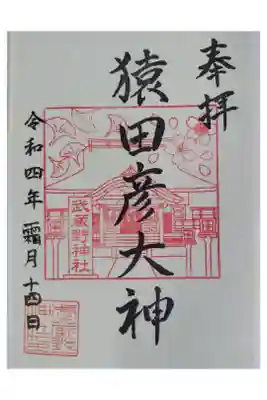 奉拝
猿田彦大神
武蔵野神社
令和四年 霜月 十四日